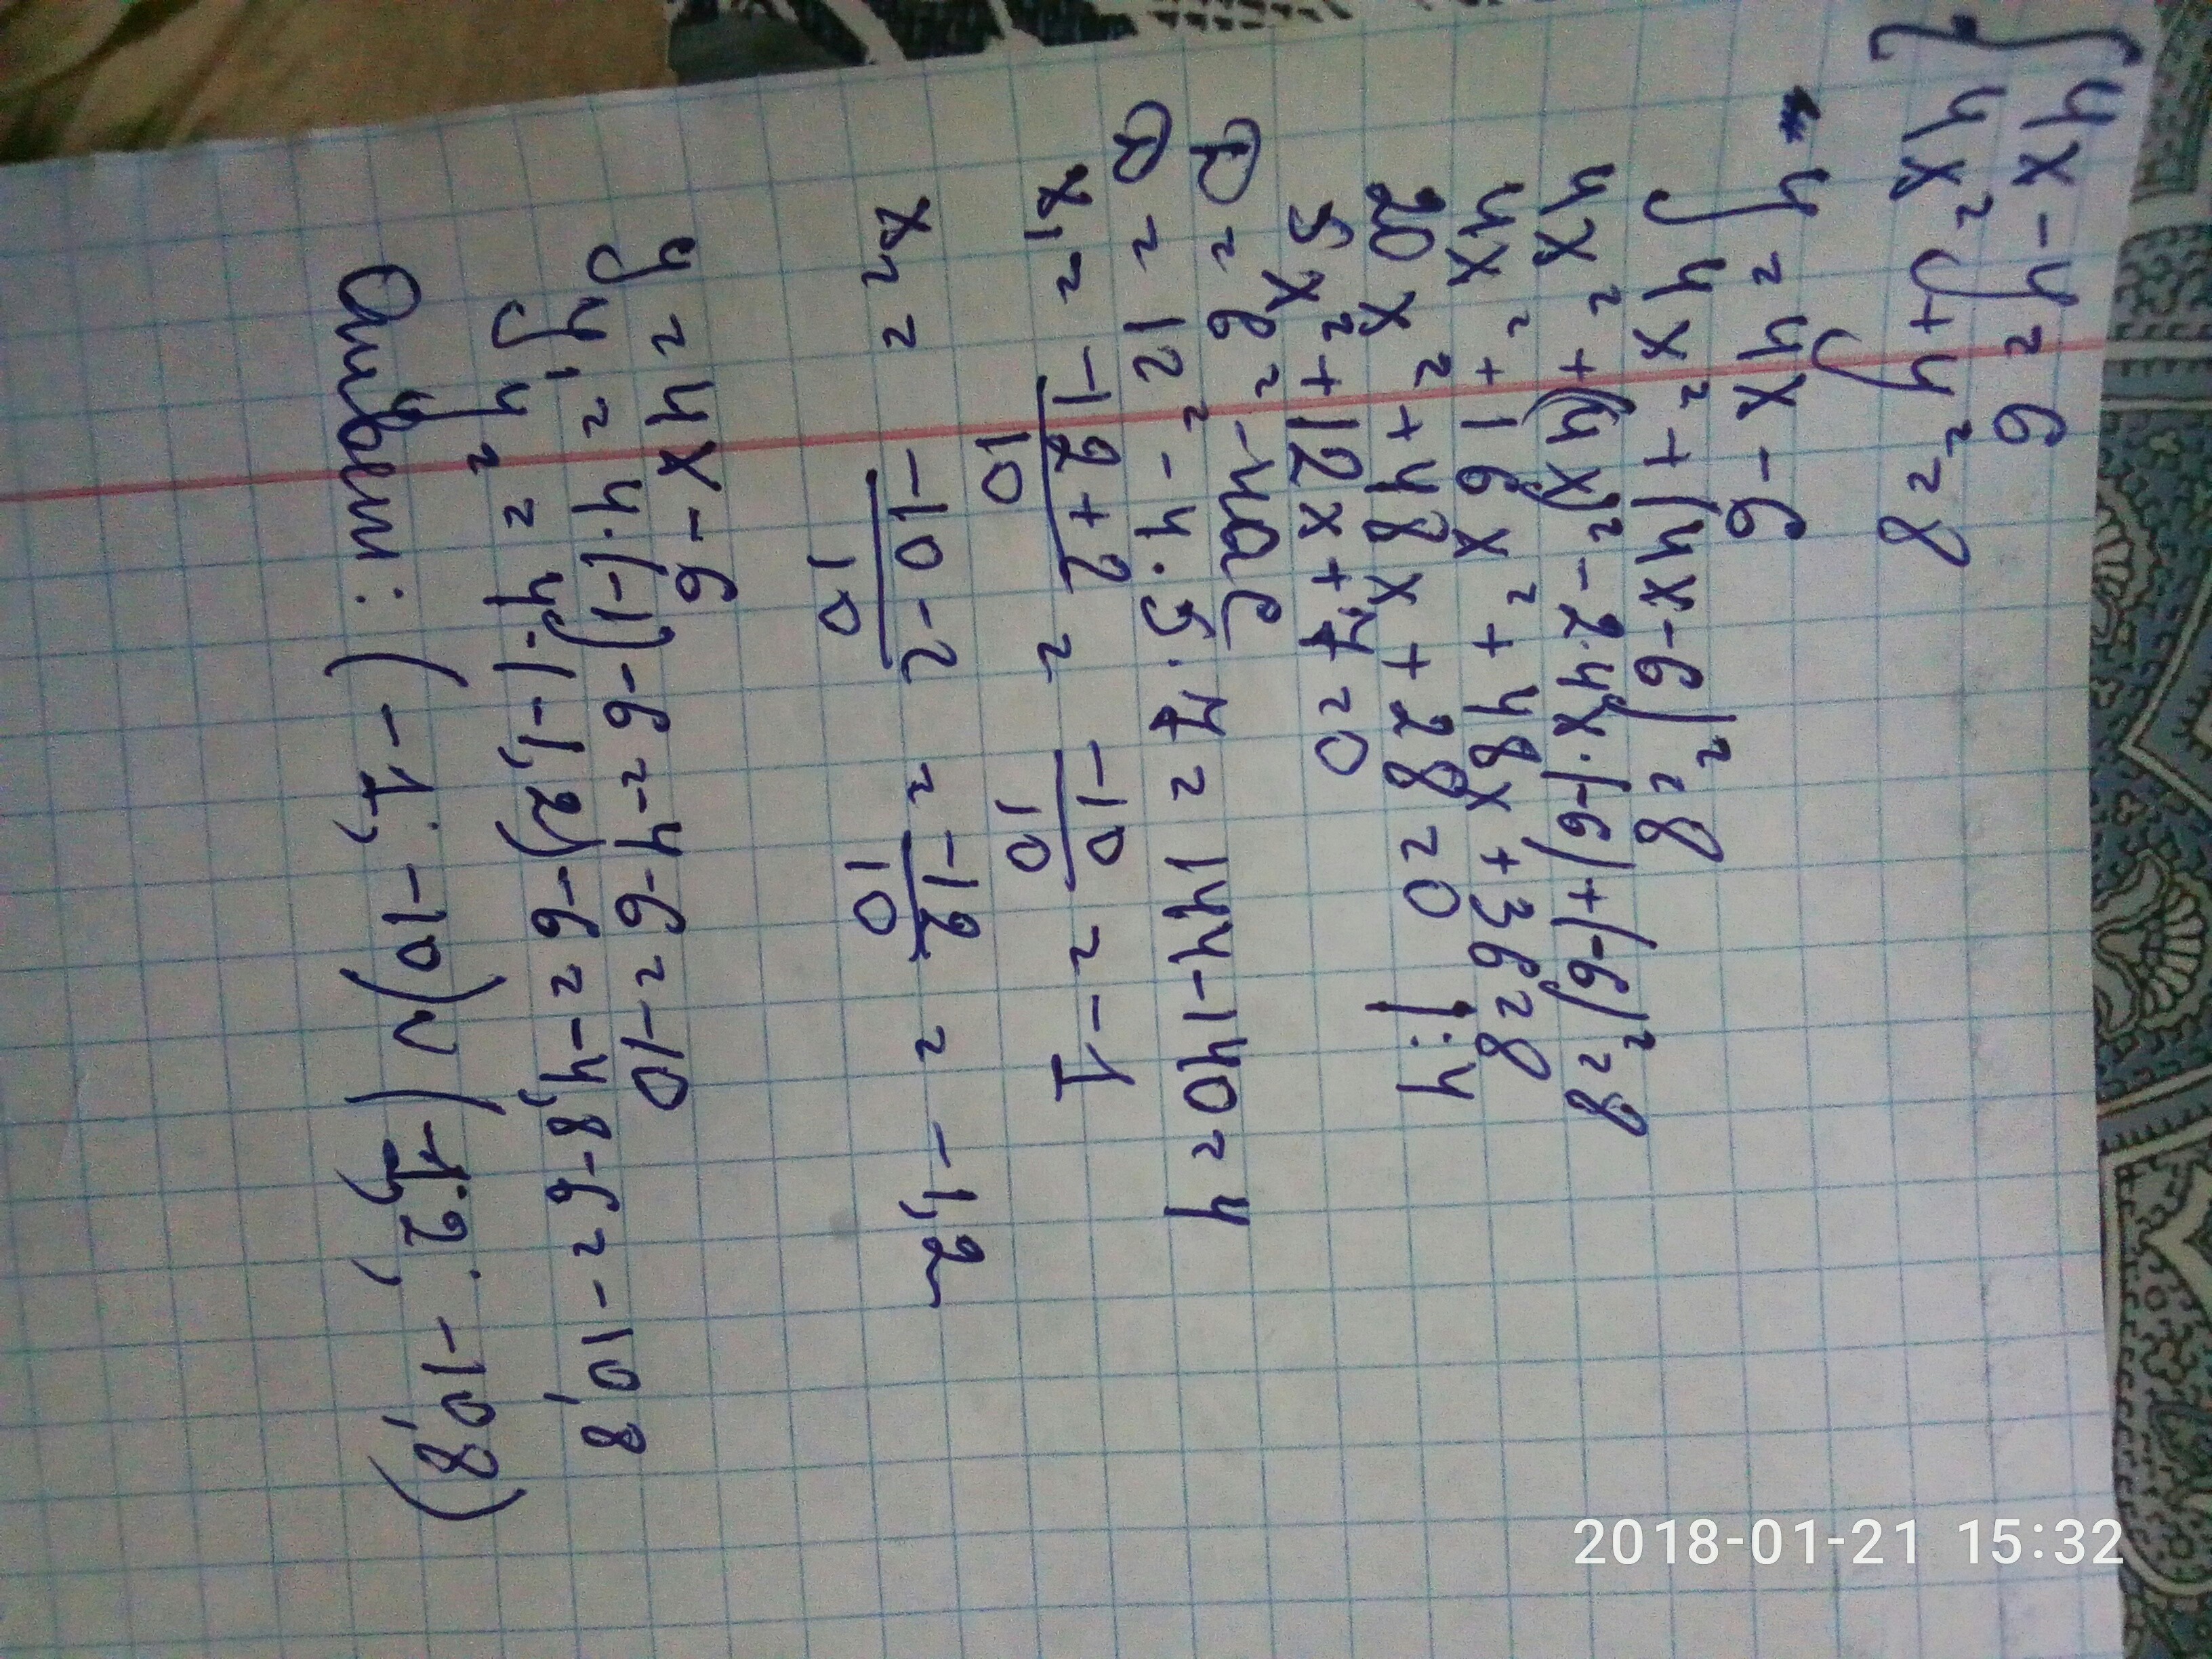 4x - y = 6
4x² + y² = 8
y = 4x - 6
4x² + (4x-6)² = 8
4x² + (4x)² - 2·4x·(-6)+(-6)² = 8
4x² + 16x² + 48x + 36 = 8
20x² + 48x + 28 = 0 | :4
5x² + 12x + 7 = 0
D = b² - 4ac
D = 12² - 4·5·7 = 144-140 = 4
x₁ = (-12+2)/10 = -10/10 = -1
x₂ = (-10-2)/10 = -12/10 = -1,2
y = 4x-6
y₁ = 4·(-1)-6 = -4-6 = -10
y₂ = 4·(-1,2)-6 = -4,8-6 = -10,8
Ответ: (-1; -10) и (-1,2; -10,8)
2018-01-21 15:32